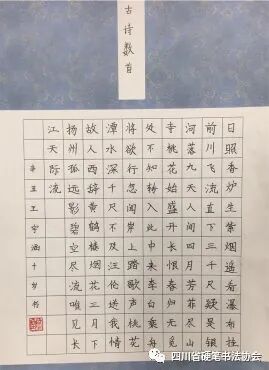 古诗数首
日照香炉生紫烟遥看瀑布挂
前川飞流直下三千尺疑是银
河落九天人间四月芳菲尽山
寺桃花始盛开长恨春归无觅
处不知转入此中来李白乘舟
将欲行忽闻岸上踏歌声桃花
潭水深千尺不及汪伦送我情
故人西辞黄鹤楼烟花三月下
扬州孤远影碧空尽流唯见长
江天际流
辛丑王宇涵十岁书
四川省硬笔书法协会